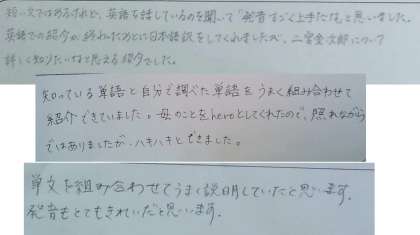 短い文ではあるけれど、英語を話しているのを聞いて「発音すごく上手だな」と思いました。
英語での紹介が終わったあとに日本語訳をしてくれましたが、二宮金次郎について
詳しく知りたいなと思える紹介でした。
知っている単語と自分で調べた単語をうまく組み合わせて
紹介できていました。母のことをheroとしてくれたので、照れながら
ではありましたが、ハキハキとできました。
単文を組み合わせてうまく説明していたと思います。
発音もとてもきれいだと思います。